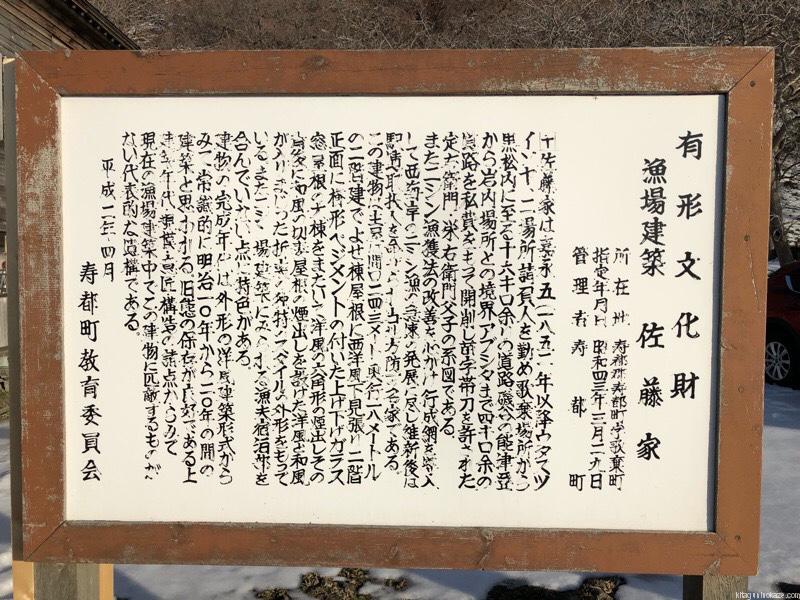 有形文化財
漁場建築 佐藤家
所在地 寿都郡寿都町字歌棄町
指定年月日 昭和四三年三月二九日
管理者 寿都町
佐藤家は嘉永五(一八五二)年以降ウタスツ
イソヤ二場所請負人を勤め歌棄場所から
黒松内に至る十六キロ余りの道路磯谷の能津登
から岩内場所との境界アブシタまで四キロ余の
道路を私費をもって開削し苗字帯刀を許された
定右衛門・栄右衛門父子の系図である。
またニシン漁獲法の改善を心がけ行成網を
して西海岸のニシン漁の急速の発展に反し維新後は
駅逓取扱人を
この建物は土京間間口二四三メートル奥行一八メートル
の二階建でよせ棟屋根に西洋風下見張り二階
正面に櫛形ペジメントの付いた上げ下げガラス
窓屋根の大棟をまたいで洋風の六角形の煙出しその
背後に和風の切妻屋根の煙出しを設けた洋風と和風
がいりまじった折衷の独特のスペイルの外形をもって
いるまたニシン場建築にみられる漁夫宿泊部を
含んでいない点に特色がある。
建物の完成年代は外形の洋風建築形式から
みて常識的に明治一〇年から二〇年の間の
建築と思われる。旧態の保存が良好である上
建築年代規模意匠構造の諸点からみて
現在の漁場建築中でこの建物に匹敵するものが
ない代表的な遺構である。
平成二年四月
寿都町教育委員会